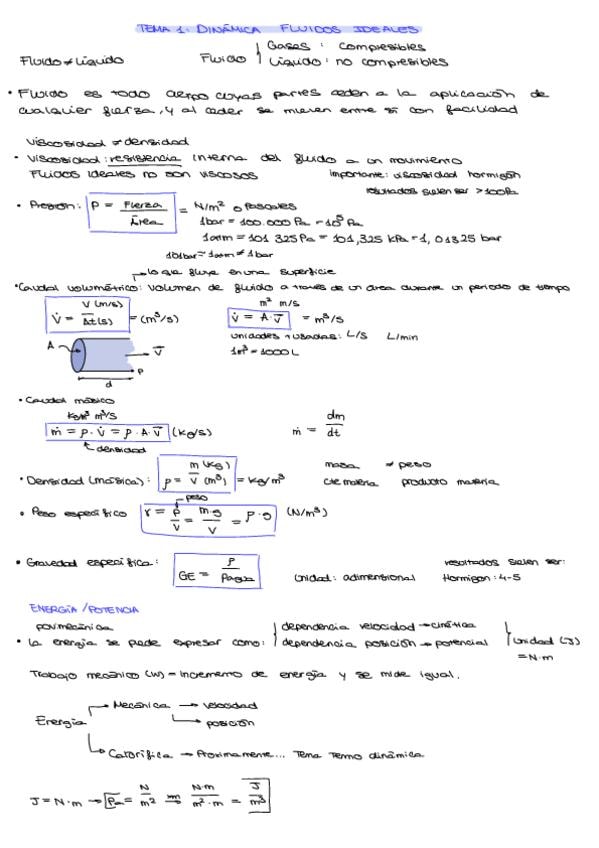 TEMA 1: DINÁMICA FLUIDOS IDEALES
Fluido ≠ Líquido
Fluido { Gases: compresibles
Líquido: no compresibles
• Fluido es todo cuerpo cuyas partes ceden a la aplicación de
cualquier fuerza, y al ceder se mueven entre sí con facilidad
Viscosidad ≠ densidad
• Viscosidad: resistencia interna del fluido a un movimiento
Fluidos ideales no son viscosos
importante: viscosidad hormigón
resultados suelen ser > 100Pa
• Presión: P = Fuerza / Área = N/m² o Pascales
1bar = 100.000 Pa = 10⁵ Pa
1atm = 101 325 Pa = 101,325 kPa = 1,01325 bar
1'01bar = 1atm ≠ 1bar
lo que fluye en una superficie
• Caudal volumétrico: volumen de fluido a través de un área durante un periodo de tiempo
V̇ = V (m/s) / Δt (s) = (m³/s)
m² m/s
V̇ = A · v̄ = m³/s
unidades + usadas: L/s L/min
1m³ = 1000 L
A
v̄
P
d
• Caudal másico
kg/m³ m³/s
ṁ = ρ · V̇ = ρ · A · v̄ (kg/s)
densidad
ṁ = dm / dt
• Densidad (másica): ρ = m (kg) / V (m³) = kg/m³
masa ≠ peso
cte materia producto materia
peso
• Peso específico γ = P / V = m·g / V = ρ · g (N/m³)
• Gravedad específica: GE = ρ / ρagua
Unidad: adimensional
resultados suelen ser:
Hormigon: 4-5
ENERGÍA / POTENCIA
• La energía se puede expresar como: { dependencia velocidad → cinética
dependencia posición → potencial
Unidad (J)
= N·m
Trabajo mecánico (W) = Incremento de energía y se mide igual.
Energía
Mecánica → velocidad
posición
Calorífica → Proximamente... Tema Termo dinámica
J = N·m → Pa = N / m² ⇒ N·m / m²·m = J / m³